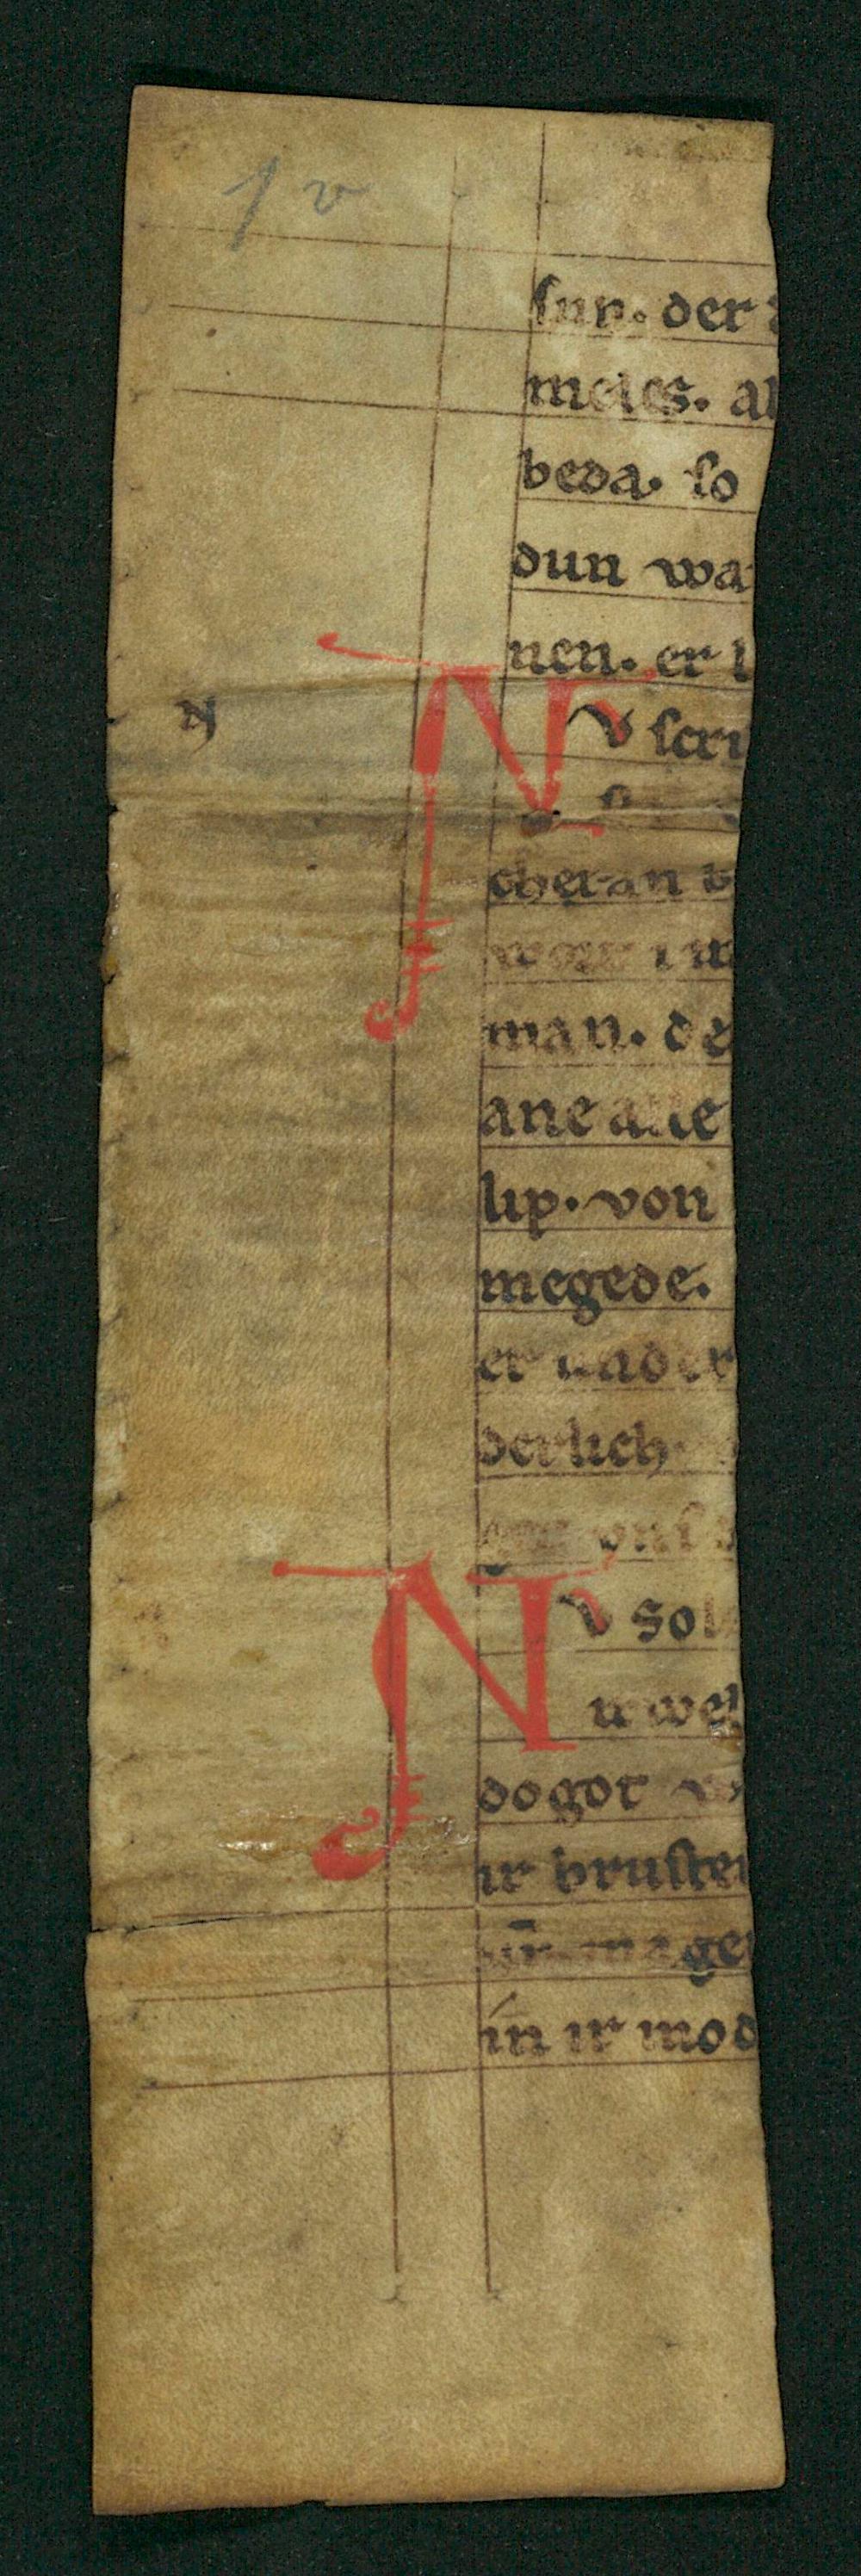 1 v
ſun. der
meies. al
beda. ſo
dun wa
nen. er i
N
Nv ſcri
cheran b
man. de
ane alle
lip. von
megede.
er
derlich
vnſ
Nv sol
ir wel
do got
ir bruſte
mage
ín ir mod